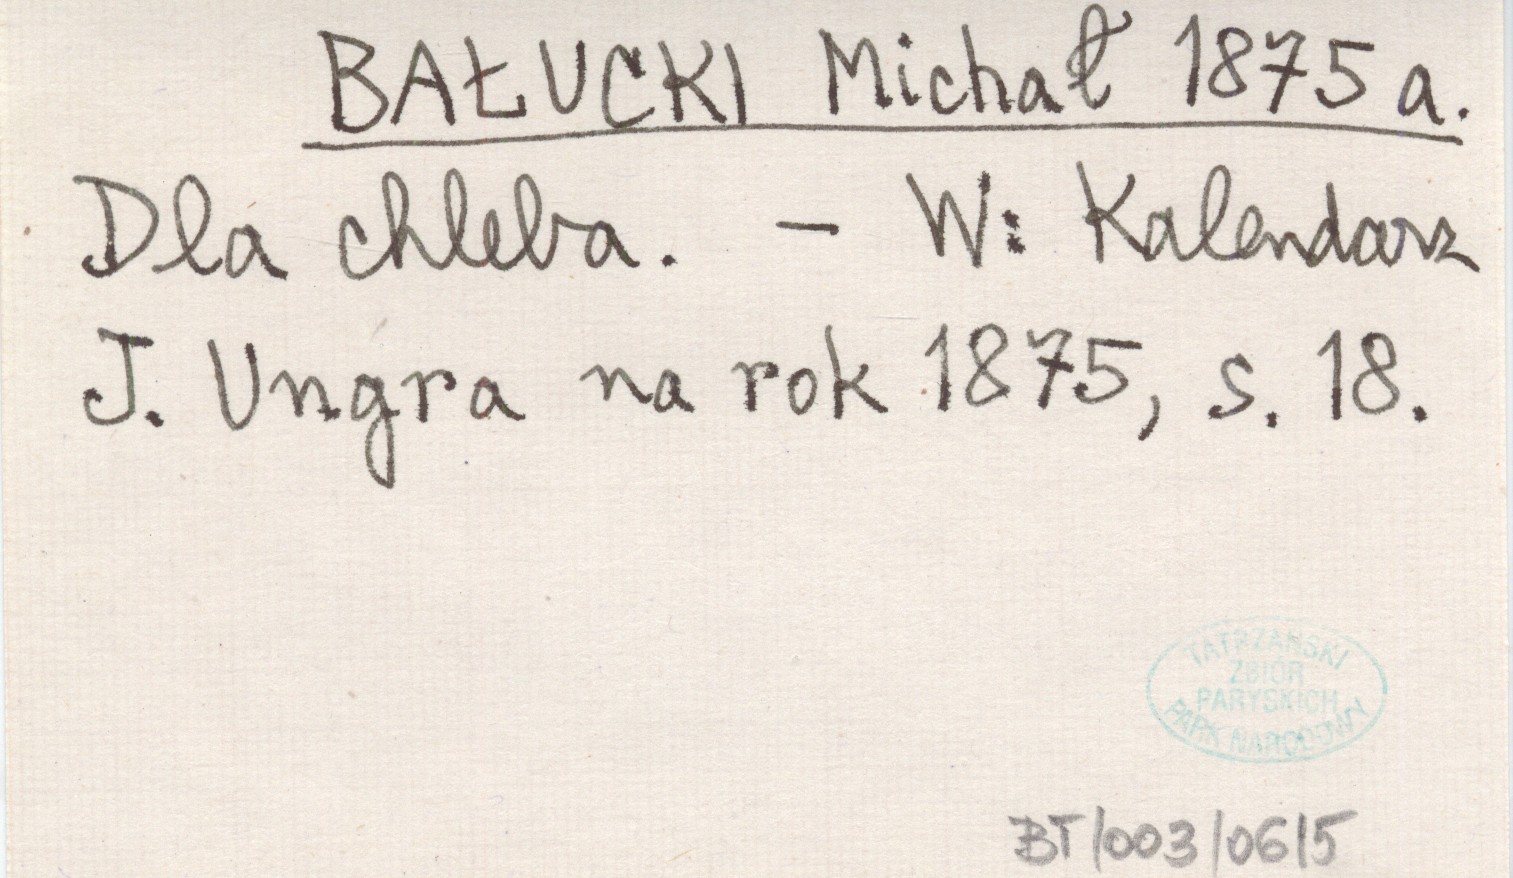 BAŁUCKI Michał 1875 a.
Dla chleba. – W: Kalendarz
J. Ungra na rok 1875, s. 18.
TATRZAŃSKI
ZBIÓR
PARYSKICH
PARK NARODOWY
BT/003/0615